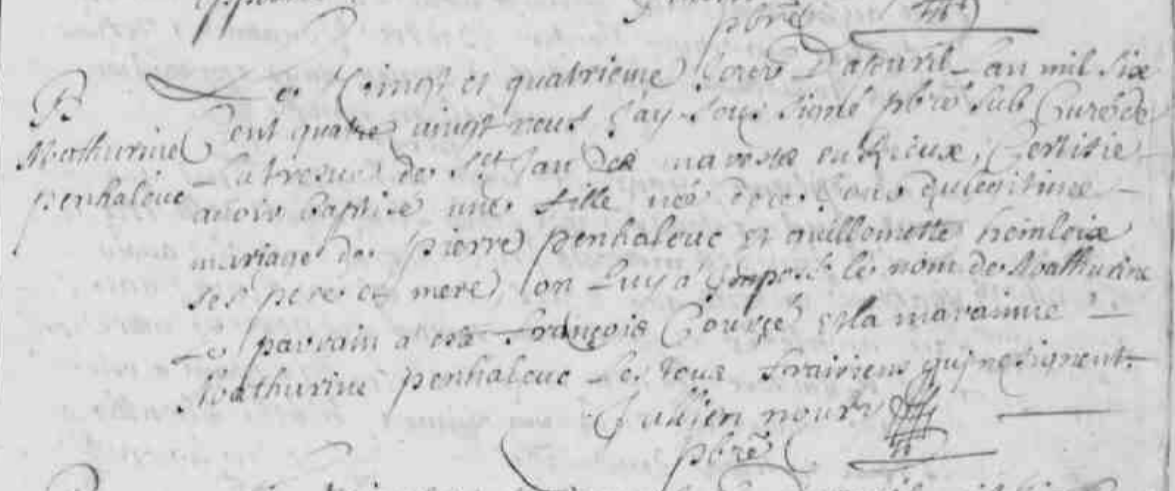 pbre
B
Mathurine
penhaleuc
Le vingt et quatrieme Jour d'apvril l'an mil six
Cent quatre vingt neuf Jay sous signé pbre sub Curé de
la tresve de St Jan des marests en Rieux, Certifie
avoir baptisé une fille née de ce Jour du legitime
mariage de pierre penhaleuc et guillemette
ses pere et mere on luy a Imposé le nom de Mathurine
Le parain a esté françois Gourgé et la maraine
Mathurine penhaleuc les tous frairiens qui ne signent.
Jullien
pbre